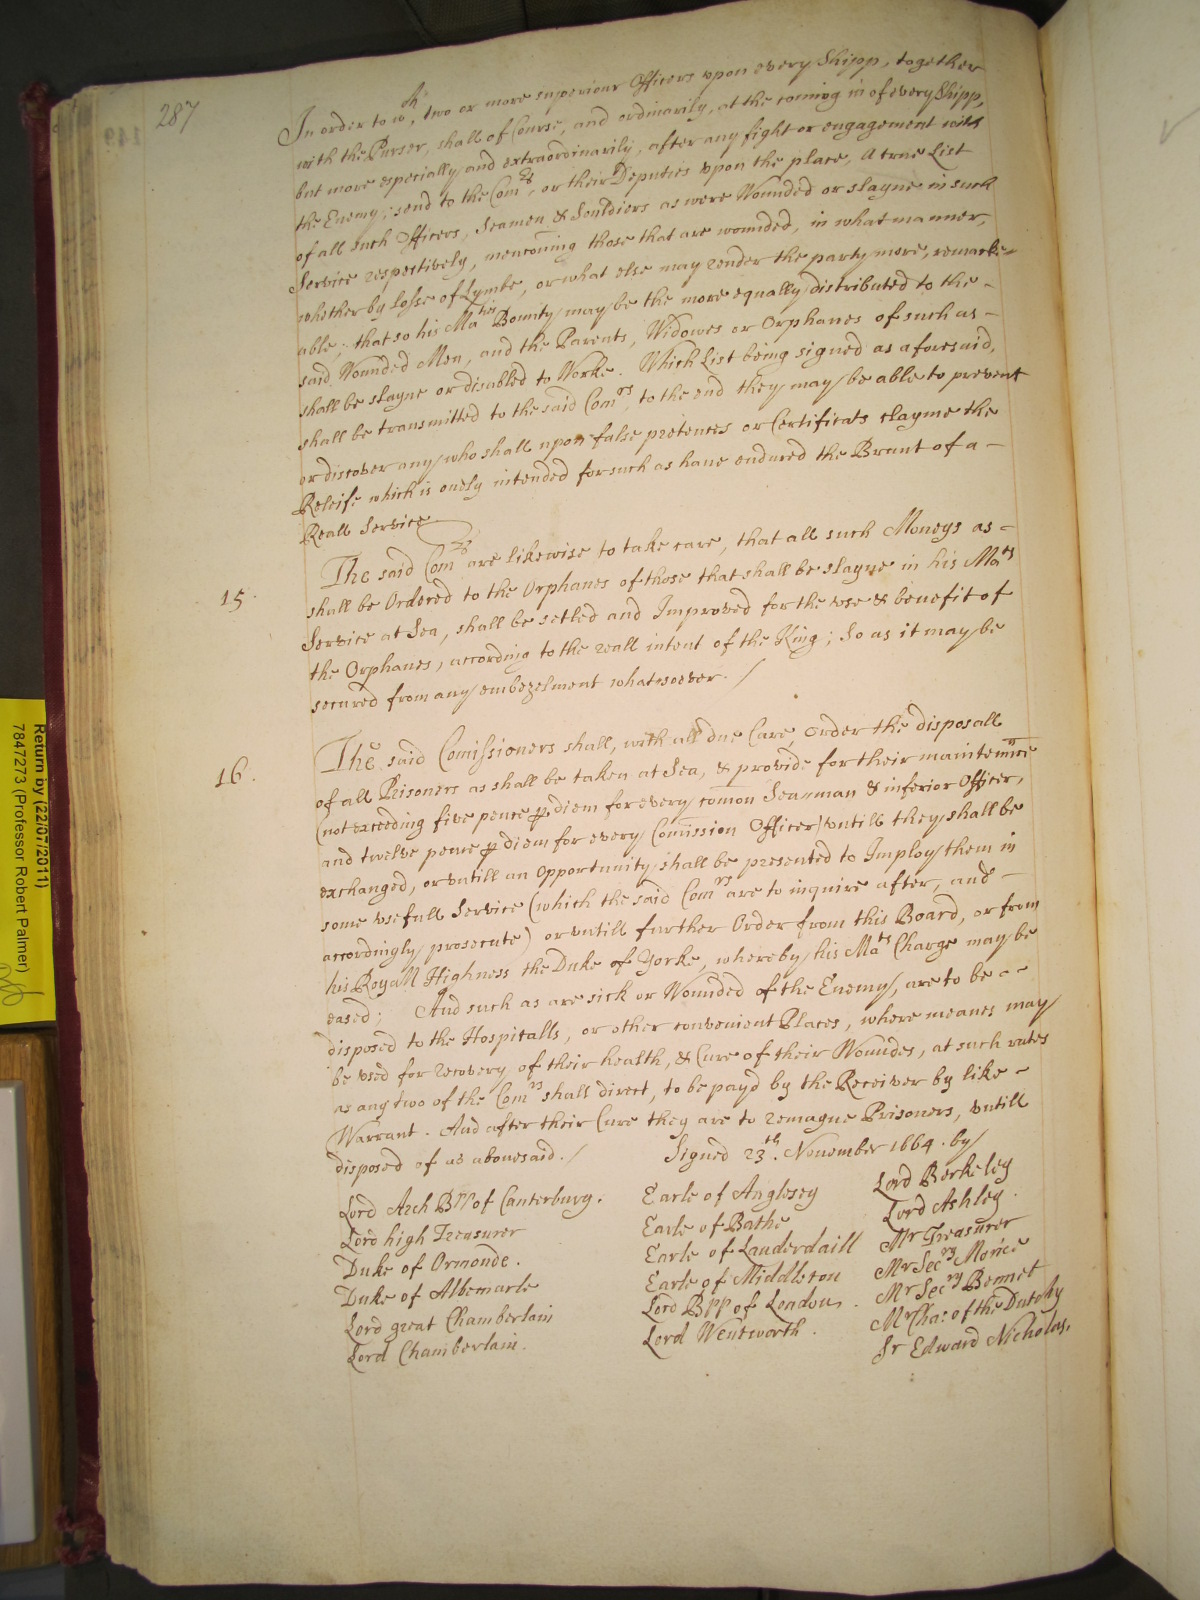 287
In order to w.ch, two or more superiour Officers vpon every Shipp, together
with the Purser, shall of Course, and ordinarily, at the coming in of every Shipp,
but more especially and extraordinarily, after any fight or engagement with
the Enemy; send to the Com.rs, or their Deputies vpon the place, A true List
of all such Officers, Seamen & Souldiers as were Wounded or slayne in such
Service respectively, menconing those that are wounded, in what manner,
whether by losse of Lymbe, or what else may render the party more, remarke=
able; that so his Ma.ties Bounty may be the more equally distributed to the -
said Wounded Men, and the Parents, Widowes or Orphanes of such as -
shall be slayne or disabled to Worke. Which List being signed as aforesaid,
shall be transmitted to the said Com.rs, to the end they may be able to prevent
or discover any who shall upon false pretences or Certificats clayme the
Releife which is onely intended for such as haue endured the Brunt of a -
Reall Service
15. The said Com.rs are likewise to take care, that all such Moneys as -
shall be Ordered to the Orphanes of those that shall be slayne in his Ma.ts
Service at Sea, shall be setled and Improved for the vse & benefit of
the Orphanes, according to the reall intent of the King; So as it may be
secured from any embezelment whatsoever. /
16. The said Comissioners shall, with all due Care, order the disposall
of all Prisoners as shall be taken at Sea, & provide for their maintennce
(not exceeding five pence p diem for every comon Sea-man & inferior Officer,
and twelve pence p diem for every Comission Officer) vntill they shall be
exchanged, or vntill an Opportunity shall be presented to Imploy them in
some vsefull Service (which the said Com.rs are to inquire after, and -
accordingly prosecute) or vntill further Order from this Board, or from
his Royall Highness the Duke of Yorke, whereby his Ma.ts Charge may be
eased; And such as are sick or Wounded of the Enemy, are to be - -
disposed to the Hospitalls, or other convenient Places, where meanes may
be vsed for recovery of their health, & Cure of their Woundes, at such rates
as any two of the Com.rs shall direct, to be payd by the Receiver by like -
Warrant. And after their Cure they are to remayne Prisoners, vntill
disposed of as abouesaid. / Signed 23.th November 1664. by/
Lord Arch Bpp of Canterbury.
Lord high Treasurer
Duke of Ormonde.
Duke of Albemarle
Lord great Chamberlain
Lord Chamberlain.
Earle of Anglesey
Earle of Bathe
Earle of Lauderdaill
Earle of Middleton
Lord Bpp of London.
Lord Wentworth.
Lord Berkeley
Lord Ashley.
Mr Treasurer
Mr Sec.ry Morice
Mr Sec.ry Bennet
Mr Cha: of the Dutchy
Sr Edward Nicholas.
Return by (22/07/2011)
7847273 (Professor Robert Palmer)